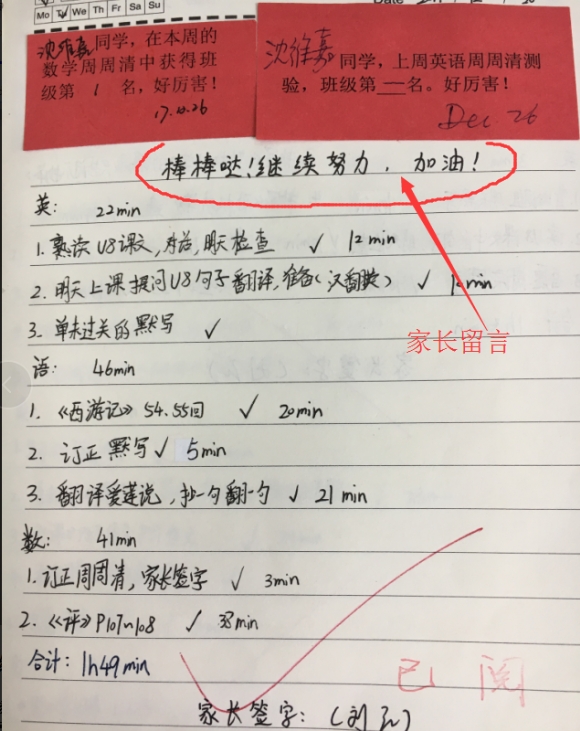 Mo Tu We Th Fr Sa Su
Date
沈维嘉同学，在本周的
数学周周清中获得班
级第 1 名，好厉害！
17.10.26
沈维嘉 同学，上周英语周周清测
验，班级第一名。好厉害！
Dec 26
棒棒哒！继续努力，加油！
家长留言
英： 22min
1. 熟读U8课文，对话，明天检查 ✓ 12min
2. 明天上课提问U8句子翻译，准备（汉翻英） ✓
3. 单未过关的默写 ✓
语： 46min
1.《西游记》54.55回 ✓ 20min
2. 订正默写 ✓ 5min
3. 翻译爱莲说，抄一句翻一句 ✓ 21min
数： 41min
1. 订正周周清，家长签字 ✓ 3min
2.《评》P107~108 ✓ 38min
合计：1h49min
已阅
家长签字：（刘